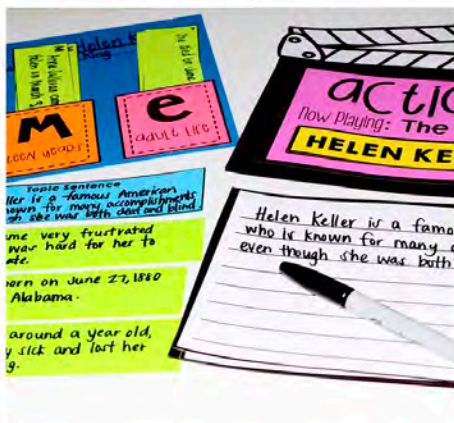 Helen K
M
e
teen years
adult life
Topic Sentence
ller is a famous American
nown for many accomplishments
gh she was both deaf and blind.
me very frustrated
was hard for her to
ate.
orn on June 27, 1880
Alabama.
around a year old,
y sick and lost her
g.
actio
now playing: The
HELEN KE
Helen Keller is a famo
who is known for many a
even though she was both